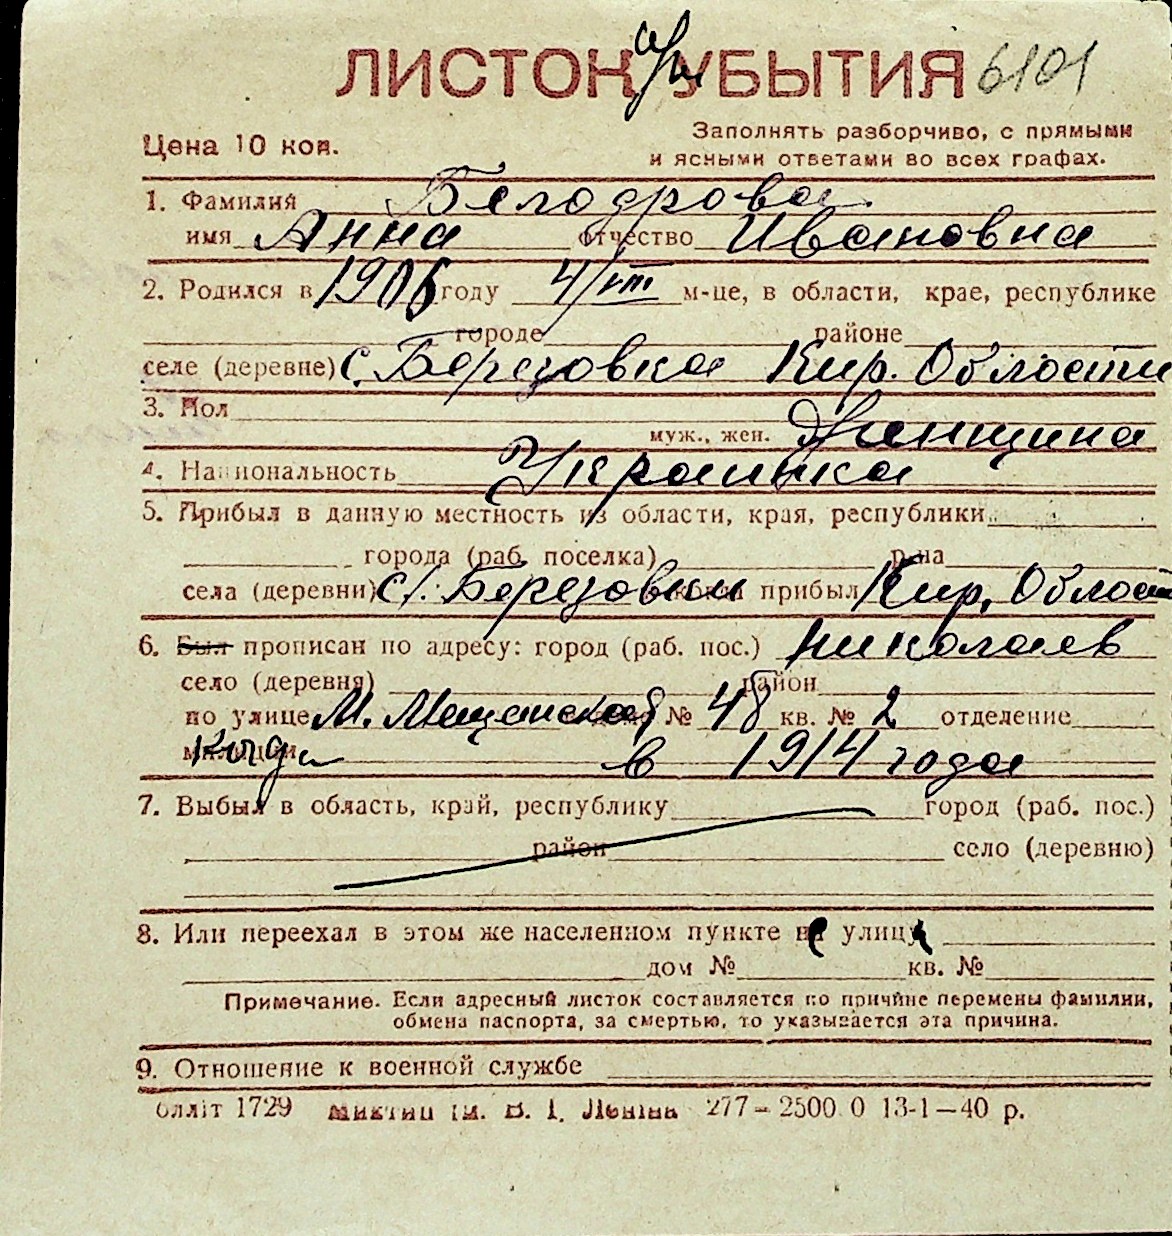 ЛИСТОК УБЫТИЯ 6101
Цена 10 коп.
Заполнять разборчиво, с прямыми
и ясными ответами во всех графах.
1. Фамилий Белодрова
имя Анна отчество Ивановна
2. Родился в 1906 году 4/VIII м-це, в области, крае, республике
городе районе
селе (деревне) с. Березовка Кир. Области
3. Пол
муж., жен. Женщина
4. Национальность Украинка
5. Прибыл в данную местность из области, края, республики
города (раб. поселка) р-на
села (деревни) с/. Березовки прибыл Кир. Област
6. Был прописан по адресу: город (раб. пос.) Николаев
село (деревня) район
по улице М. Мещанской № 48 кв. № 2 отделение
милиции когда в 1914 года
7. Выбыл в область, край, республику город (раб. пос.)
район село (деревню)
8. Или переехал в этом же населенном пункте на улицу
дом № кв. №
Примечание. Если адресный листок составляется по причине перемены фамилии,
обмена паспорта, за смертью, то указывается эта причина.
9. Отношение к военной службе
блліт 1729 ім. В. І. Леніна 277–2500 0 13-1–40 р.